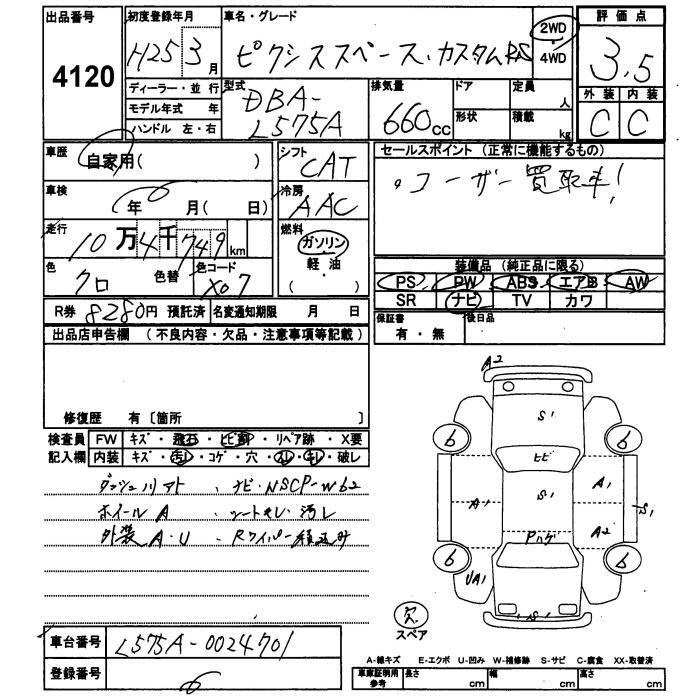 出品番号
4120
初度登録年月
H25 3月
車名・グレード
ピクシススペース・カスタムRS
2WD
4WD
評価点
3.5
外装 内装
C C
ディーラー・並行
モデル年式 年
ハンドル 左・右
型式
DBA-
L575A
排気量
660cc
ドア
形状
定員 人
積載 kg
車歴
自家用( )
シフト
CAT
セールスポイント (正常に機能するもの)
。ユーザー買取車!
車検
年 月( 日)
冷房
AAC
走行
10万4千749km
燃料
ガソリン
軽・油
( )
色
クロ
色替
色コード
X07
装備品 (純正品に限る)
PS PW ABS エアB AW
SR ナビ TV カワ
R券 8280円 預託済 名変通知期限 月 日
保証書
有・無
後日品
出品店申告欄 (不良内容・欠品・注意事項等記載)
修復歴 有〔箇所 〕
検査員 FW キズ・飛石・ヒビ割・リペア跡・X要
記入欄 内装 キズ・汚れ・コゲ・穴・スレ・キレ・破レ
ナビ・NSCP-W62
ホイールA ・シートスレ・汚レ
外装 A・U ・Rワイパー積込み
A2
S1
6
6
ヒビ
A1
S1
A1
S1
A2
Pハゲ
6
6
UA1
S1
欠
スペア
車台番号
L575A-0024701
登録番号
A-線キズ E-エクボ U-凹み W-補修跡 S-サビ C-腐食 XX-取替済
車庫証明用
参考
長さ cm
幅 cm
高さ cm